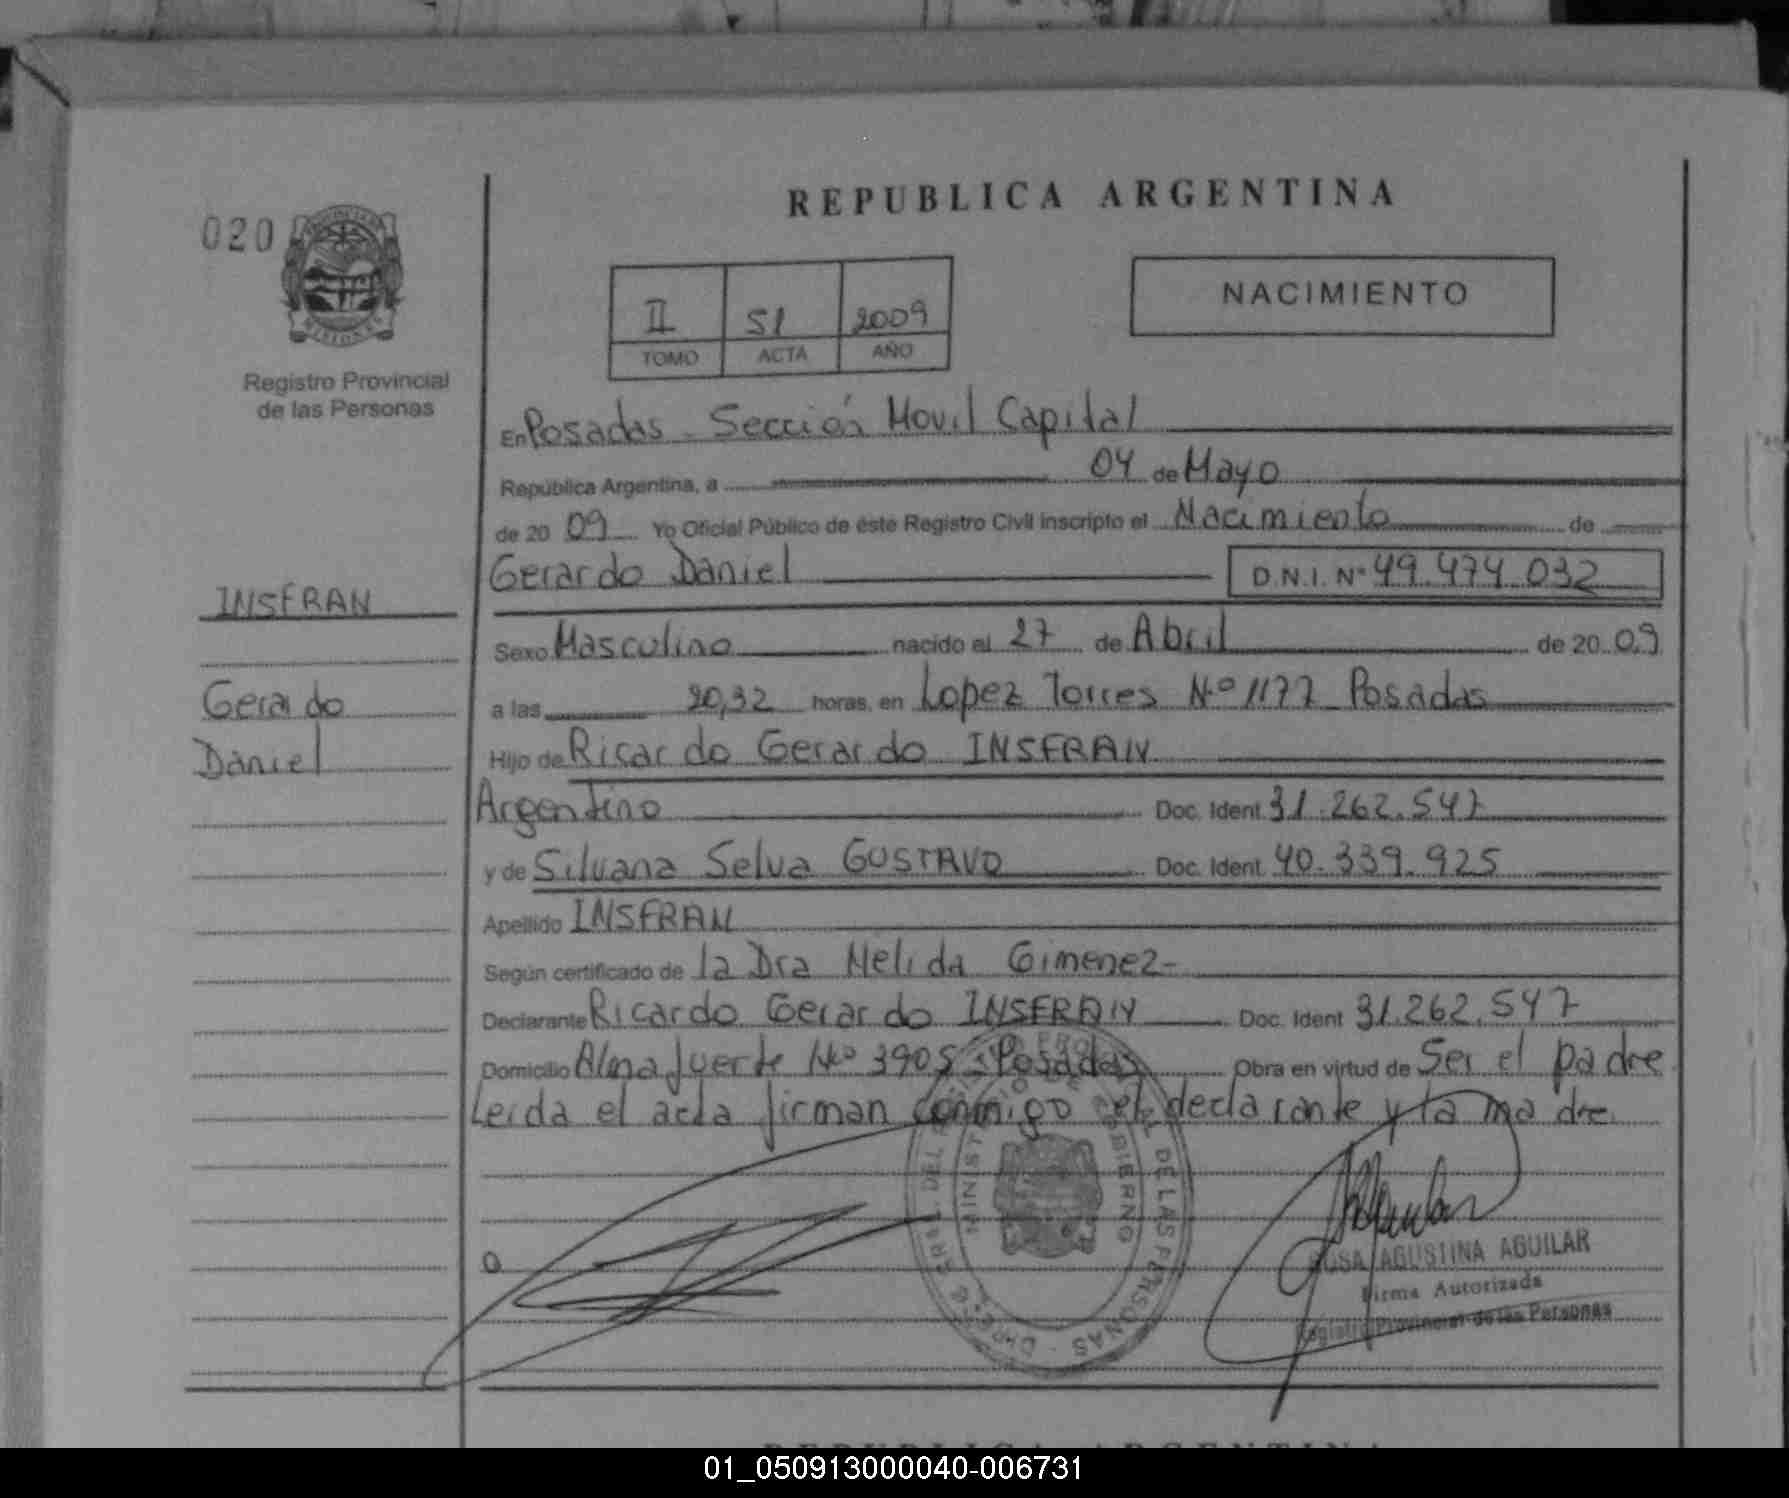 REPUBLICA ARGENTINA
020
II 51 2009
TOMO ACTA AÑO
NACIMIENTO
Registro Provincial
de las Personas
En Posadas - Sección Movil Capital
República Argentina, a 04 de Mayo
de 20 09 Yo Oficial Público de éste Registro Civil inscripto el Nacimiento de
Gerardo Daniel D.N.I. Nº 49.474.032
INSFRAN
Sexo Masculino nacido el 27 de Abril de 20 09
Gerardo
a las 20,32 horas, en Lopez Torres Nº 1177 Posadas
Daniel
Hijo de Ricardo Gerardo INSFRAN
Argentino Doc. Ident 31.262.547
y de Silvana Selva GUSTAVO Doc. Ident. 40.339.925
Apellido INSFRAN
Según certificado de la Dra Nelida Gimenez-
Declarante Ricardo Gerardo INSFRAN Doc. Ident 31.262.547
Domicilio Almafuerte Nº 3905 - Posadas Obra en virtud de Ser el padre
Leída el acta firman conmigo el declarante y la madre.
MINISTERIO DE GOBIERNO
DEL DE LAS PERSONAS
AGUSTINA AGUILAR
Firma Autorizada
Registro Provincial de las Personas
REPUBLICA ARGENTINA
01_050913000040-006731